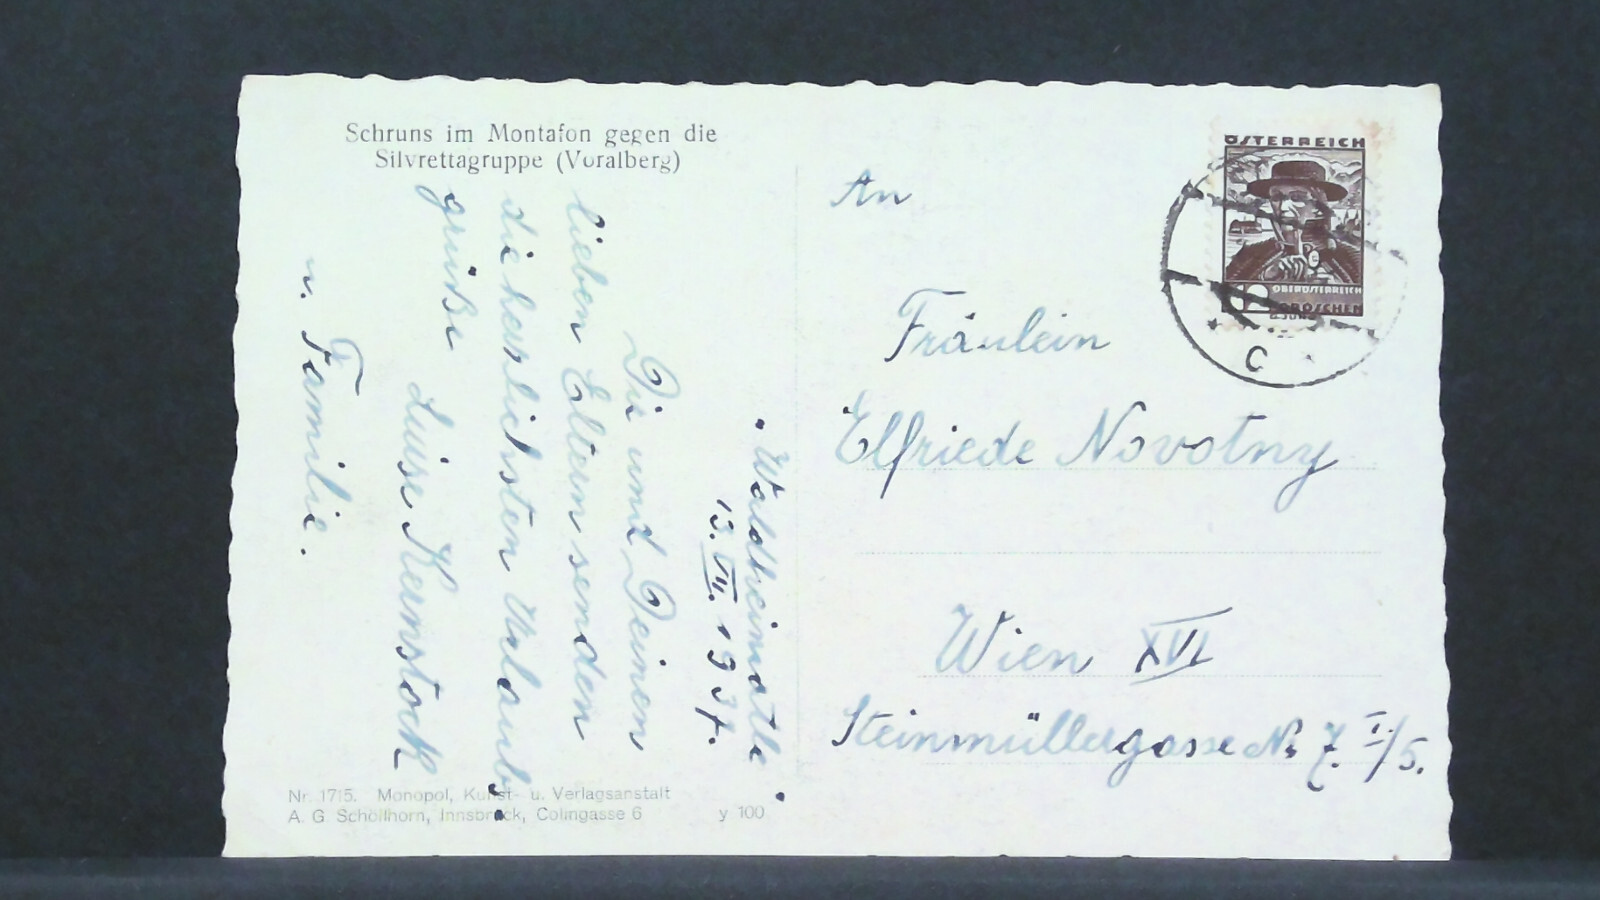 Schruns im Montafon gegen die
Silvrettagruppe (Voralberg)
Waldheimat
13. VII. 1937.
Dir und Deinen
lieben Eltern senden
die herzlichsten Urlaubs
grüße
Luise Kernstock
u. Familie.
Nr. 1715. Monopol, Kunst- u. Verlagsanstalt
A. G Schöllhorn, Innsbruck, Colingasse 6 y 100
ÖSTERREICH
OBERÖSTERREICH
12 GROSCHEN
C
An
Fräulein
Elfriede Novotny
Wien XVI
Steinmüllergasse Nr 7. I/5.